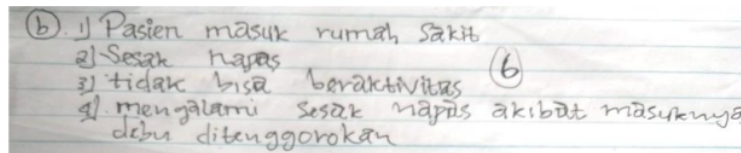 b. 1) Pasien masuk rumah sakit
2) Sesak napas
6
3) tidak bisa beraktivitas
4). mengalami sesak napas akibat masuknya
debu ditenggorokan